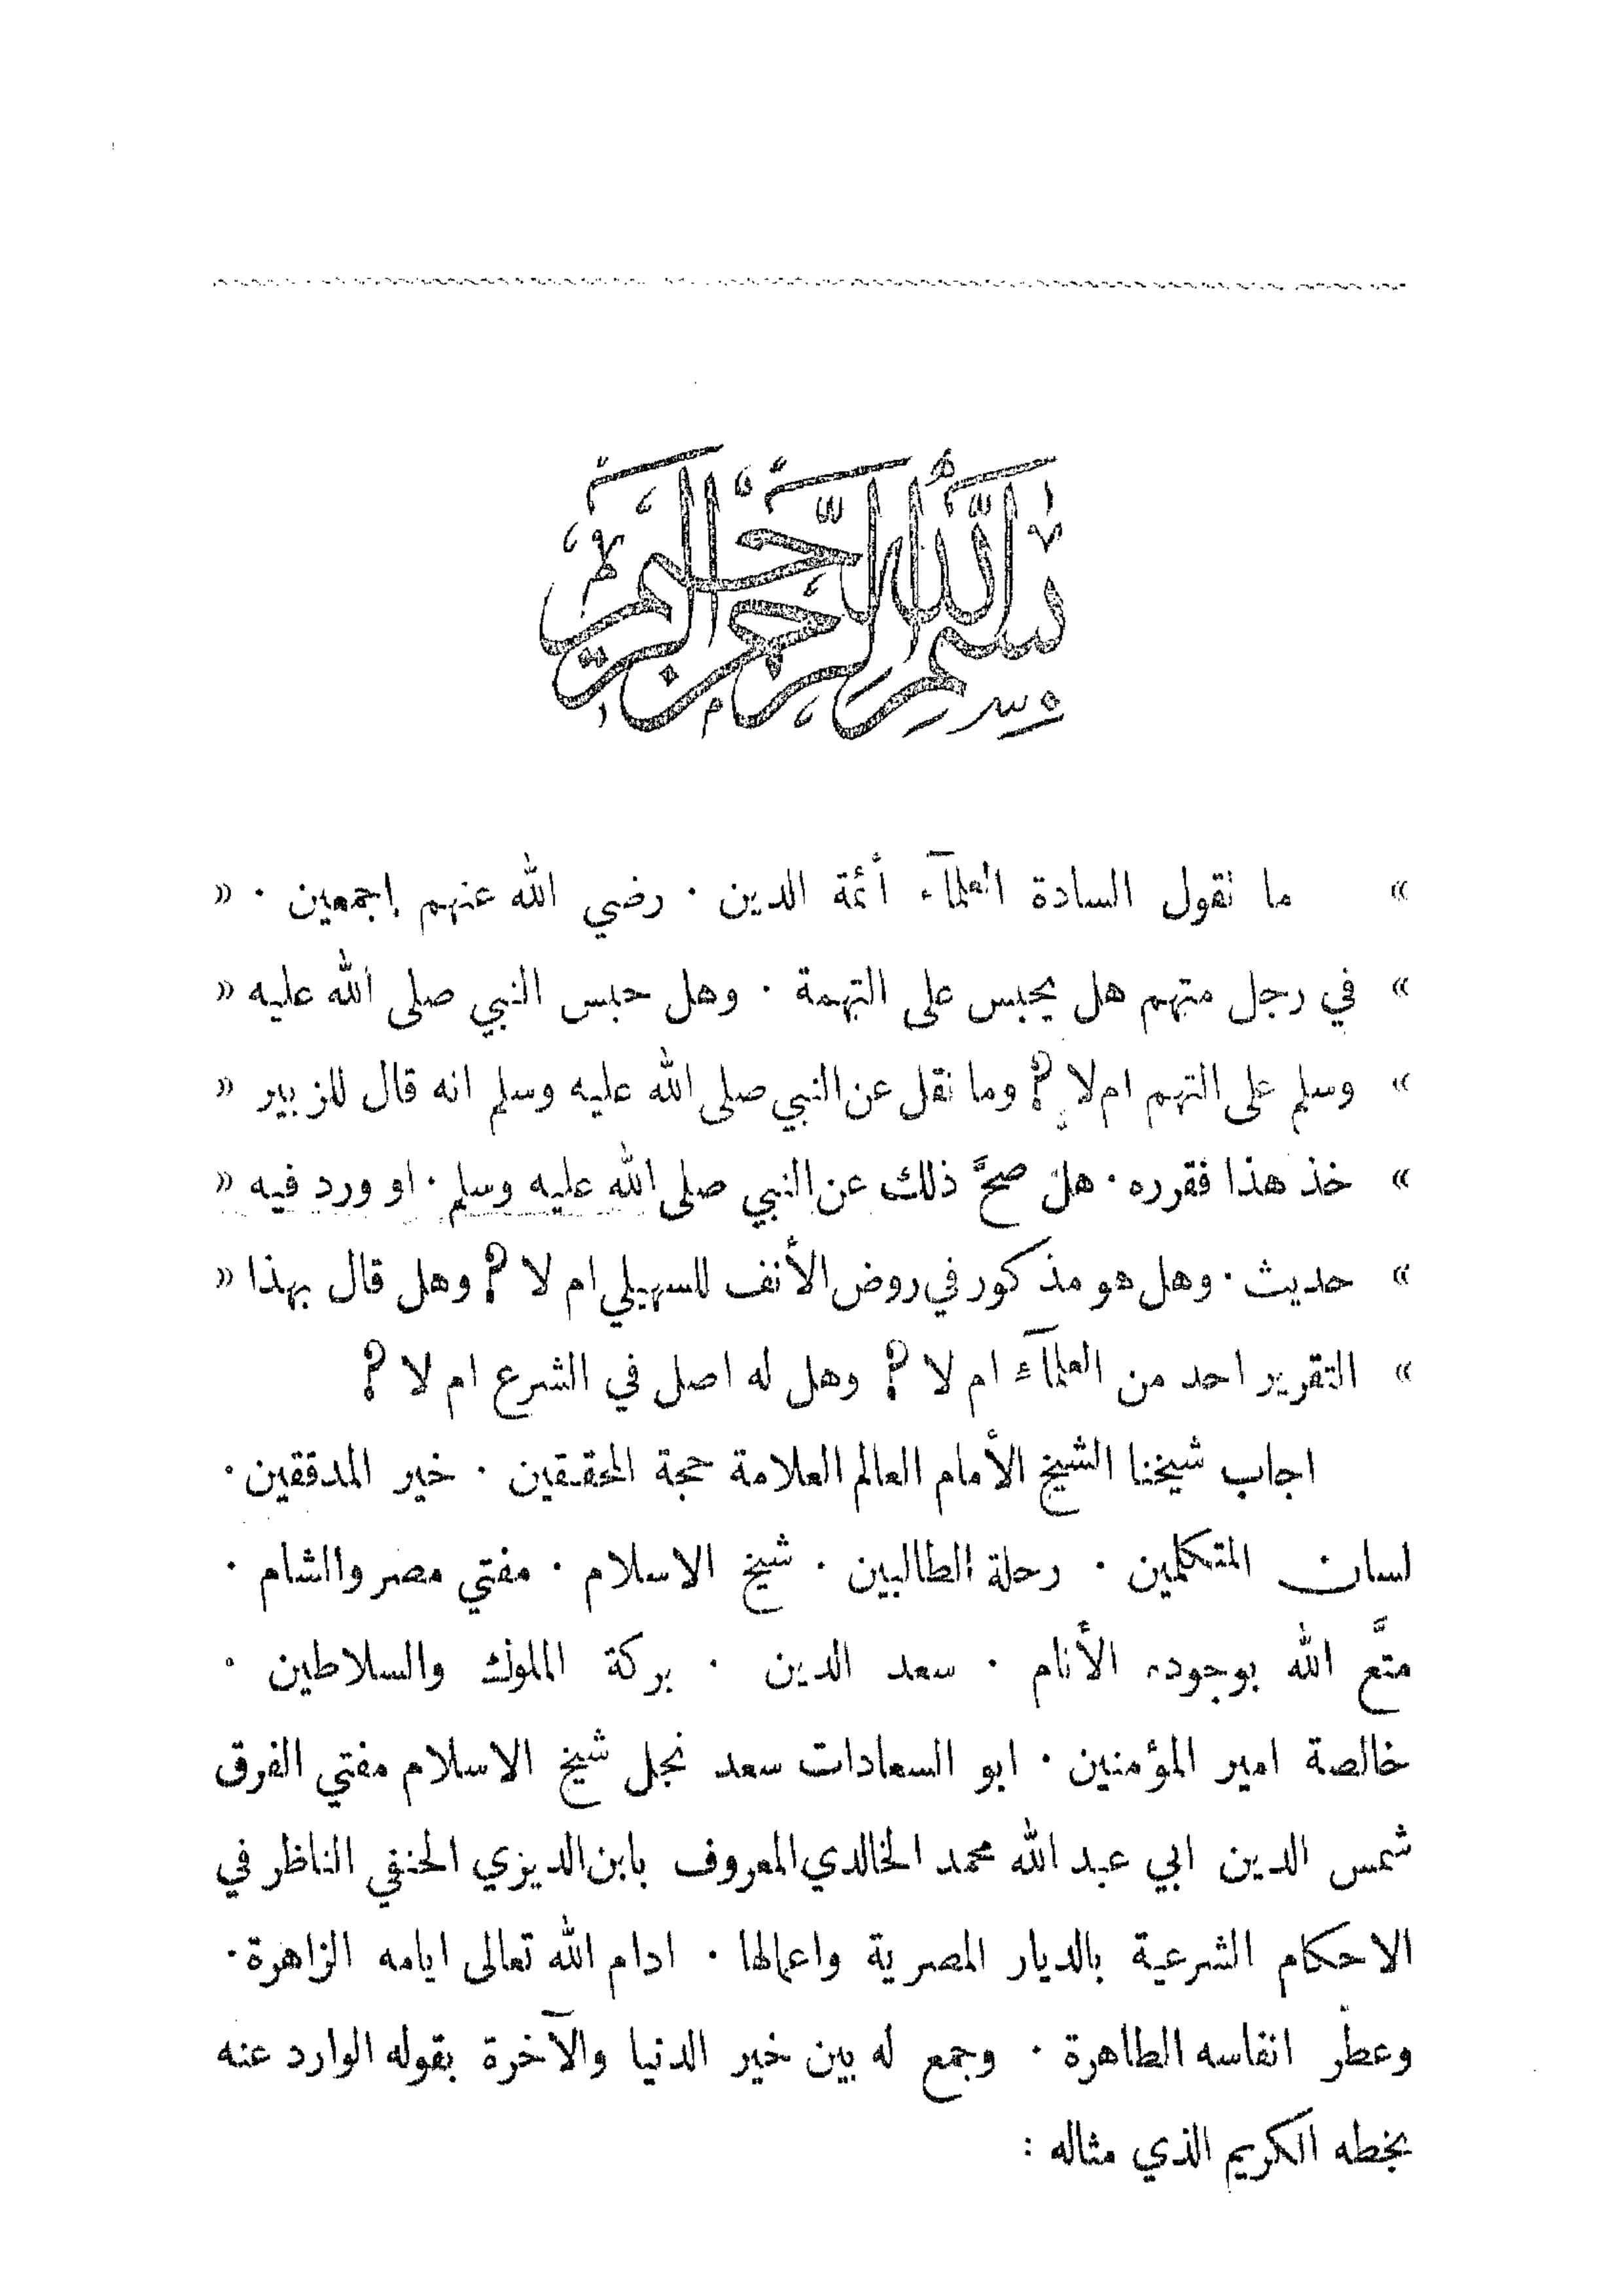 بسم الله الرحمن الرحيم
» ما نقول السادة العلمآء أئمة الدين · رضي الله عنهم اجمعين · «
» في رجل متهم هل يحبس على التهمة · وهل حبس النبي صلى الله عليه «
» وسلم على التهم ام لا ? وما نقل عن النبي صلى الله عليه وسلم انه قال للزبير «
» خذ هذا فقرره · هل صحَّ ذلك عن النبي صلى الله عليه وسلم · او ورد فيه «
» حديث · وهل هو مذكور في روض الأنف للسهيلي ام لا ? وهل قال بهذا «
» التقرير احد من العلمآء ام لا ? وهل له اصل في الشرع ام لا ?
اجاب شيخنا الشيخ الأمام العالم العلامة حجة المحققين · خير المدققين ·
لسان المتكلمين · رحلة الطالبين · شيخ الاسلام · مفتي مصر والشام ·
متَّع الله بوجوده الأنام · سعد الدين · بركة الملوك والسلاطين ·
خالصة امير المؤمنين · ابو السعادات سعد نجل شيخ الاسلام مفتي الفرق
شمس الدين ابي عبد الله محمد الخالدي المعروف بابن الديزي الحنفي الناظر في
الاحكام الشرعية بالديار المصرية واعمالها · ادام الله تعالى ايامه الزاهرة ·
وعطر انفاسه الطاهرة · وجمع له بين خير الدنيا والآخرة بقوله الوارد عنه
بخطه الكريم الذي مثاله :